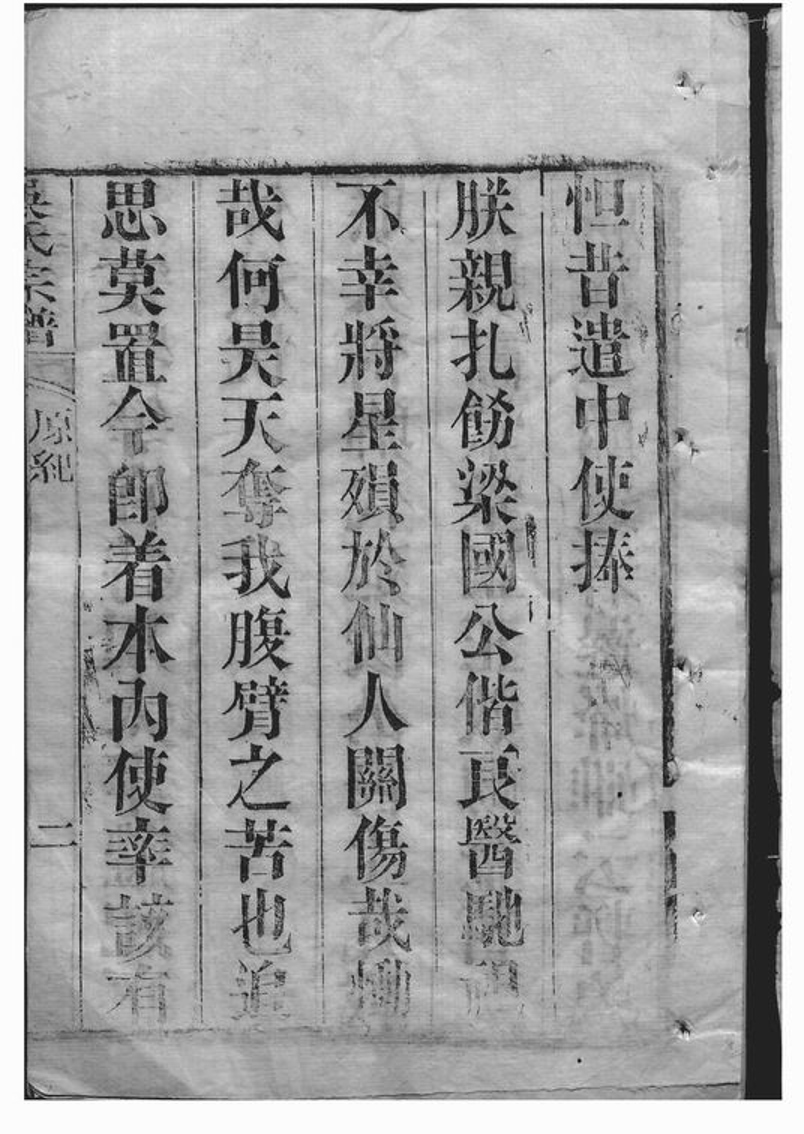 怛昔遣中使捧
朕親扎飭梁國公偕良醫馳視
不幸將星殞於仙人關傷哉慟
哉何昊天奪我腹臂之苦也追
思莫置今卽着本內使率該有
吳氏宗譜
原紀
二